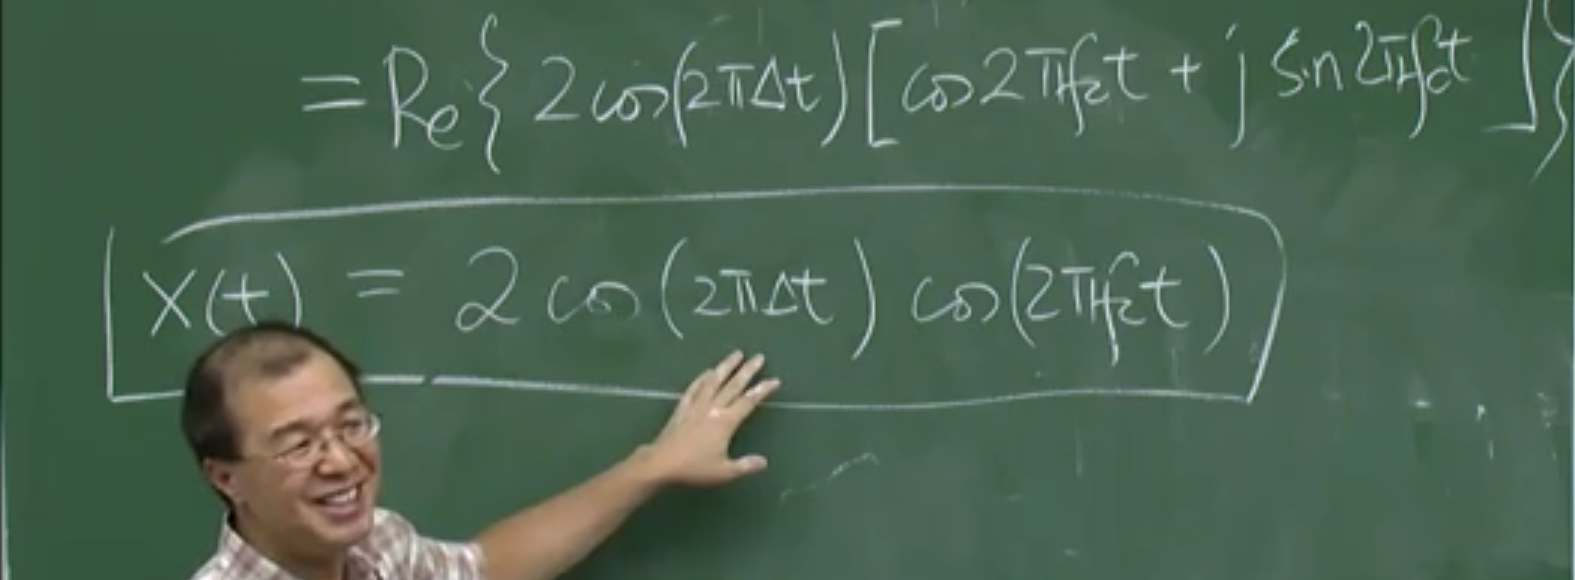 = Re{ 2 cos(2πΔt) [ cos 2πf_c t + j sin 2πf_c t ] }
x(t) = 2 cos(2πΔt) cos(2πf_c t)